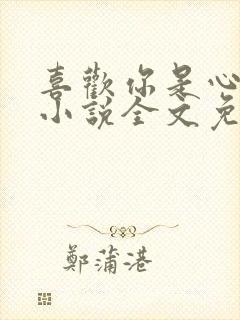 喜歡你是心
小說全文免
鄭蒲港